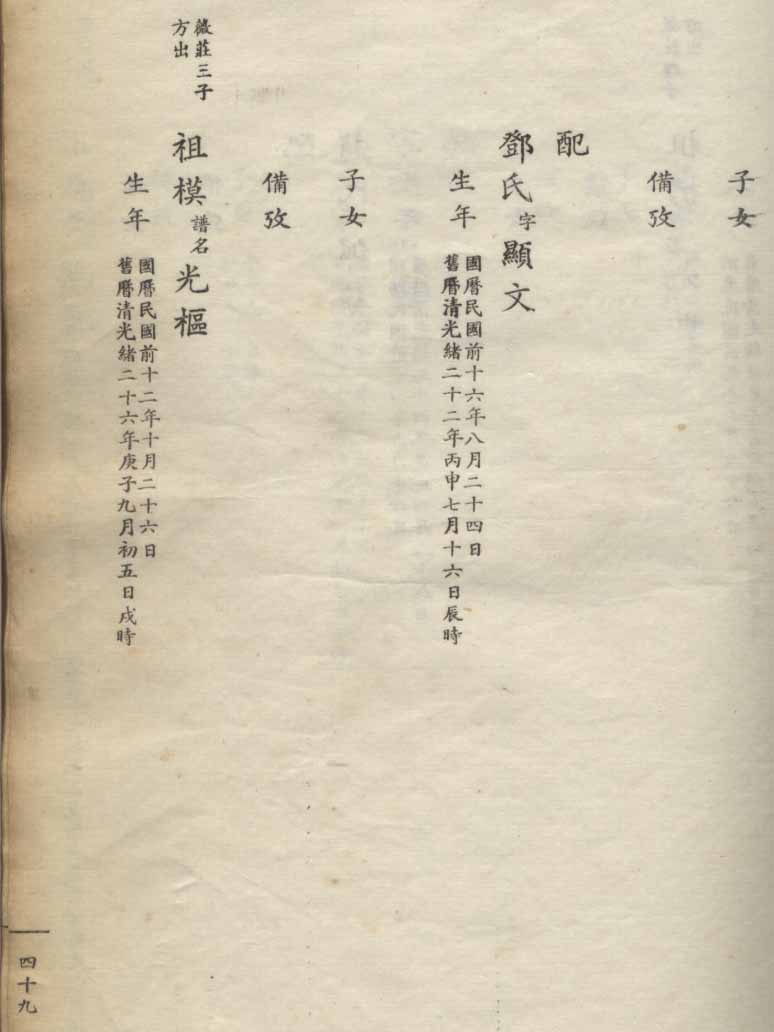 子女
備攷
配
鄧氏字顯文
生年
國曆民國前十六年八月二十四日
舊曆清光緒二十二年丙申七月十六日辰時
子女
備攷
薇莊三子
方出
祖模譜名光樞
生年
國曆民國前十二年十月二十六日
舊曆清光緒二十六年庚子九月初五日戌時
四十九